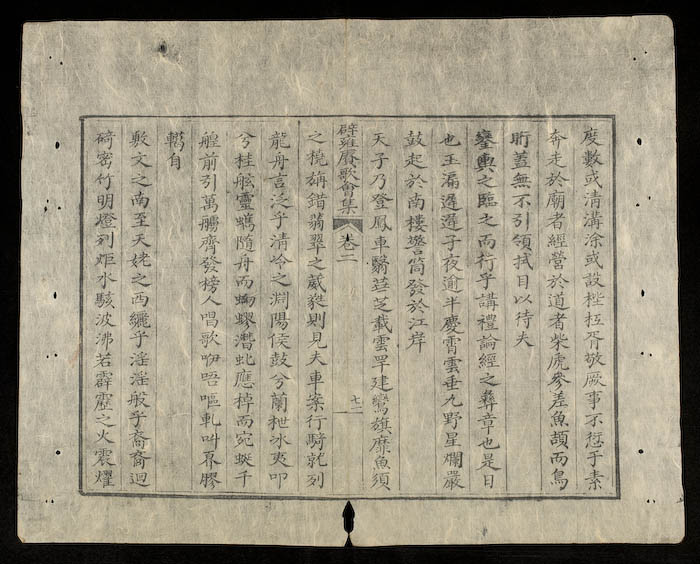 度數或清溝涂或設梐枑胥敬厥事不愆于素
奔走於廟者經營於道者柴虒參差魚頡而鳥
䀪蓋無不引領拭目以待夫
鑾輿之臨之而行乎講禮論經之彝章也是日
也玉漏遲遲子夜逾半慶霄雲垂九野星爛嚴
鼓起於南樓警筒發於江岸
天子乃登鳳車翳華芝載雲罕建鸞旗靡魚須
之橈旃錯翡翠之葳蕤則見夫車案行騎就列
辟雍賡歌會集 卷二 七二
龍舟言泛乎清泠之淵陽侯鼓兮蘭枻冰夷叩
兮桂舷靈螭隨舟而蜿蟉潛虬應棹而宛蜒千
艎前引萬艫齊發榜人唱歌咿唔嘔軋叫奡膠
轕自
敷文之南至天姥之西纚乎淫淫般乎裔裔迴
碕密竹明燈列炬水駭波沸若霹靂之火震燿